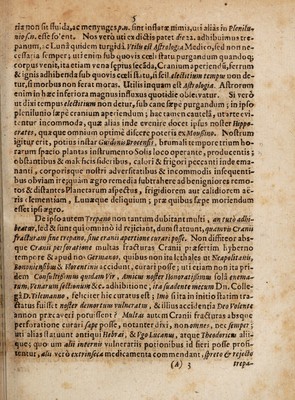 5
ria non sit fluida, ac menynges p.n. sint instar ex mimis, uti alias in Plenilu-
nio p.n. esse solent. Nos verò uti ex dictis patet die 22. adhibuimus tre-
panum, ac Lunâ quidem turgidâ. Utilis est Astrologia Medico, sed non ne-
cessaria semper; uti enim sub quovis cœli statu purgandum quandoq;
corpus venit, ita etiam vena sæpius secanda, Cranium aperiendũ, ferrum
& ignis adhibenda sub quovis cœli statu, si scil. electitium tempus non de-
tur, si morbus non ferat moras. Utilis inquam est Astrologia. Astrorum
enim in hæc inferiora magnus influxus quotidie observatur. Si verò
ut dixi tempus electitium non detur, sub cane sæpe purgandum; in ipso
plenilunio sæpe cranium aperiendum; hac tamen cautelâ, ut arte vi-
tentur incommoda, quæ alias inde evenire docet ipsus noster Hippo-
crates, quæque omnium optimè discere poteris ex Monsino. Nostrum
igitur erit, potius instar Guidonis Bretensii, brumali tempore trium ho-
rarum spacio plantas instrumento in hoc operante, producentis;
obstantibus & maleficis sideribus, calori & frigori peccanti inde ema-
nanti, corporisque nostri adversitatibus & incommodis insequenti-
bus obviam ire; quàm ægro remedia subtrahere ad benigniores remo-
tos & distantes Planetarum aspectus, frigidiorem aut calidiorem ae-
ris clementiam, Lunæque deliquium; præ quibus sæpe moriendum
esset ipsi ægro.
De ipso autem Trepano non tantum dubitant multi, an tutò adhi-
beatur, sed & sunt qui omninò id rejiciant, dum statuunt, quamvis Cranii
fracturam sine trepano, sine cranii apertione curari posse. Non diffiteor abs-
que Cranii perforatione multas fracturas Cranii præsertim in Hyberno
tempore & apud nos Germanos, quibus non ita lethales ut Neapolitanis,
Bononiensibus & Florentinis accidunt, curari posse; uti etiam non ita pri-
dem Consultissimus quidam Vir, Amicus noster Honoratissimus solâ enema-
tum, Venarum sectionum &c. adhibitione, ita suadente mecum Dn. Colle-
gâ D. Tilemanno, feliciter hic curatus est; Imò si ita in initio statim tra-
status fuisset noster demortuus vulneratus, & illius accidentia Deo Volente
annon præcaveri potuissent? Multas autem Cranii fracturas absque
perforatione curari sæpe posse, notanter dixi, non omnes, nec semper;
uti alias statuunt antiqui Hebræi, & Ugo Lucanus, atque Theodoricus alii-
que; quo um alii internis vulnerariis potionibus id fieri posse profi-
tentur, alii verò extrinsecâ medicamenta commendant, spreto & rejecto
(A) 3 trepa-